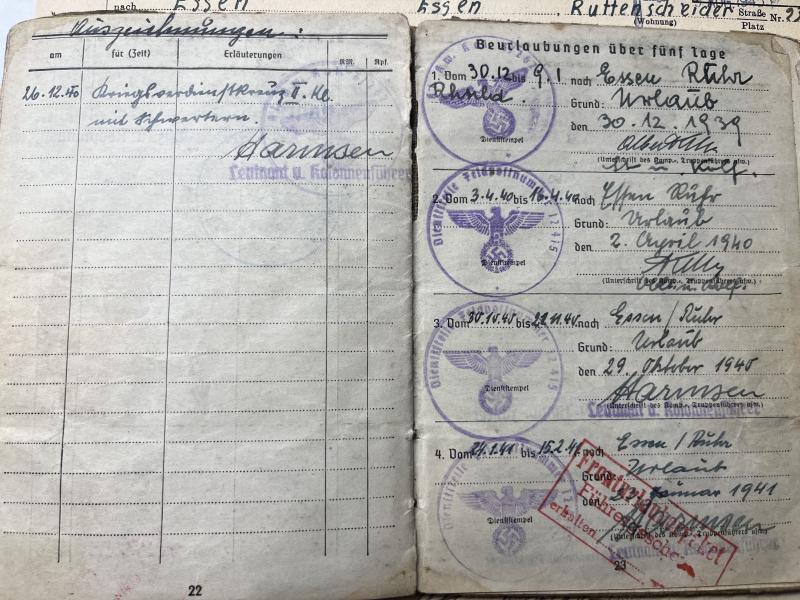 nach Essen Essen Ruttenscheider Straße Nr. 22
(Wohnung) Platz
Auszeichnungen:
am für (Zeit) Erläuterungen RM. Rpf.
26.12.40 Kriegsverdienstkreuz II. Kl.
mit Schwertern.
Harmsen
Leutnant u. Kolonnenführer
22
Beurlaubungen über fünf Tage
1. Vom 30.12 bis 9.1 nach Essen Ruhr
Rhnld. Grund: Urlaub
den 30.12.1939
Dienststempel
(Unterschrift des Komp.-, Truppenführers usw.)
Dienststelle Feldpostnummer 12415
2. Vom 3.4.40 bis 16.4.40 nach Essen Ruhr
Grund: Urlaub
den 2. April 1940
Dienststempel
(Unterschrift des Komp.-, Truppenführers usw.)
3. Vom 30.10.40 bis 22.11.40 nach Essen/Ruhr
Grund: Urlaub
den 29. Oktober 1940
Dienststempel
Harmsen
(Unterschrift des Komp.-, Truppenführers usw.)
Leutnant u. Kolonnenführer
4. Vom 24.1.41 bis 15.2.41 nach Essen/Ruhr
Grund: Urlaub
den Januar 1941
Dienststempel
Harmsen
(Unterschrift des Komp.-, Truppenführers usw.)
Leutnant u. Kolonnenführer
erhalten
23